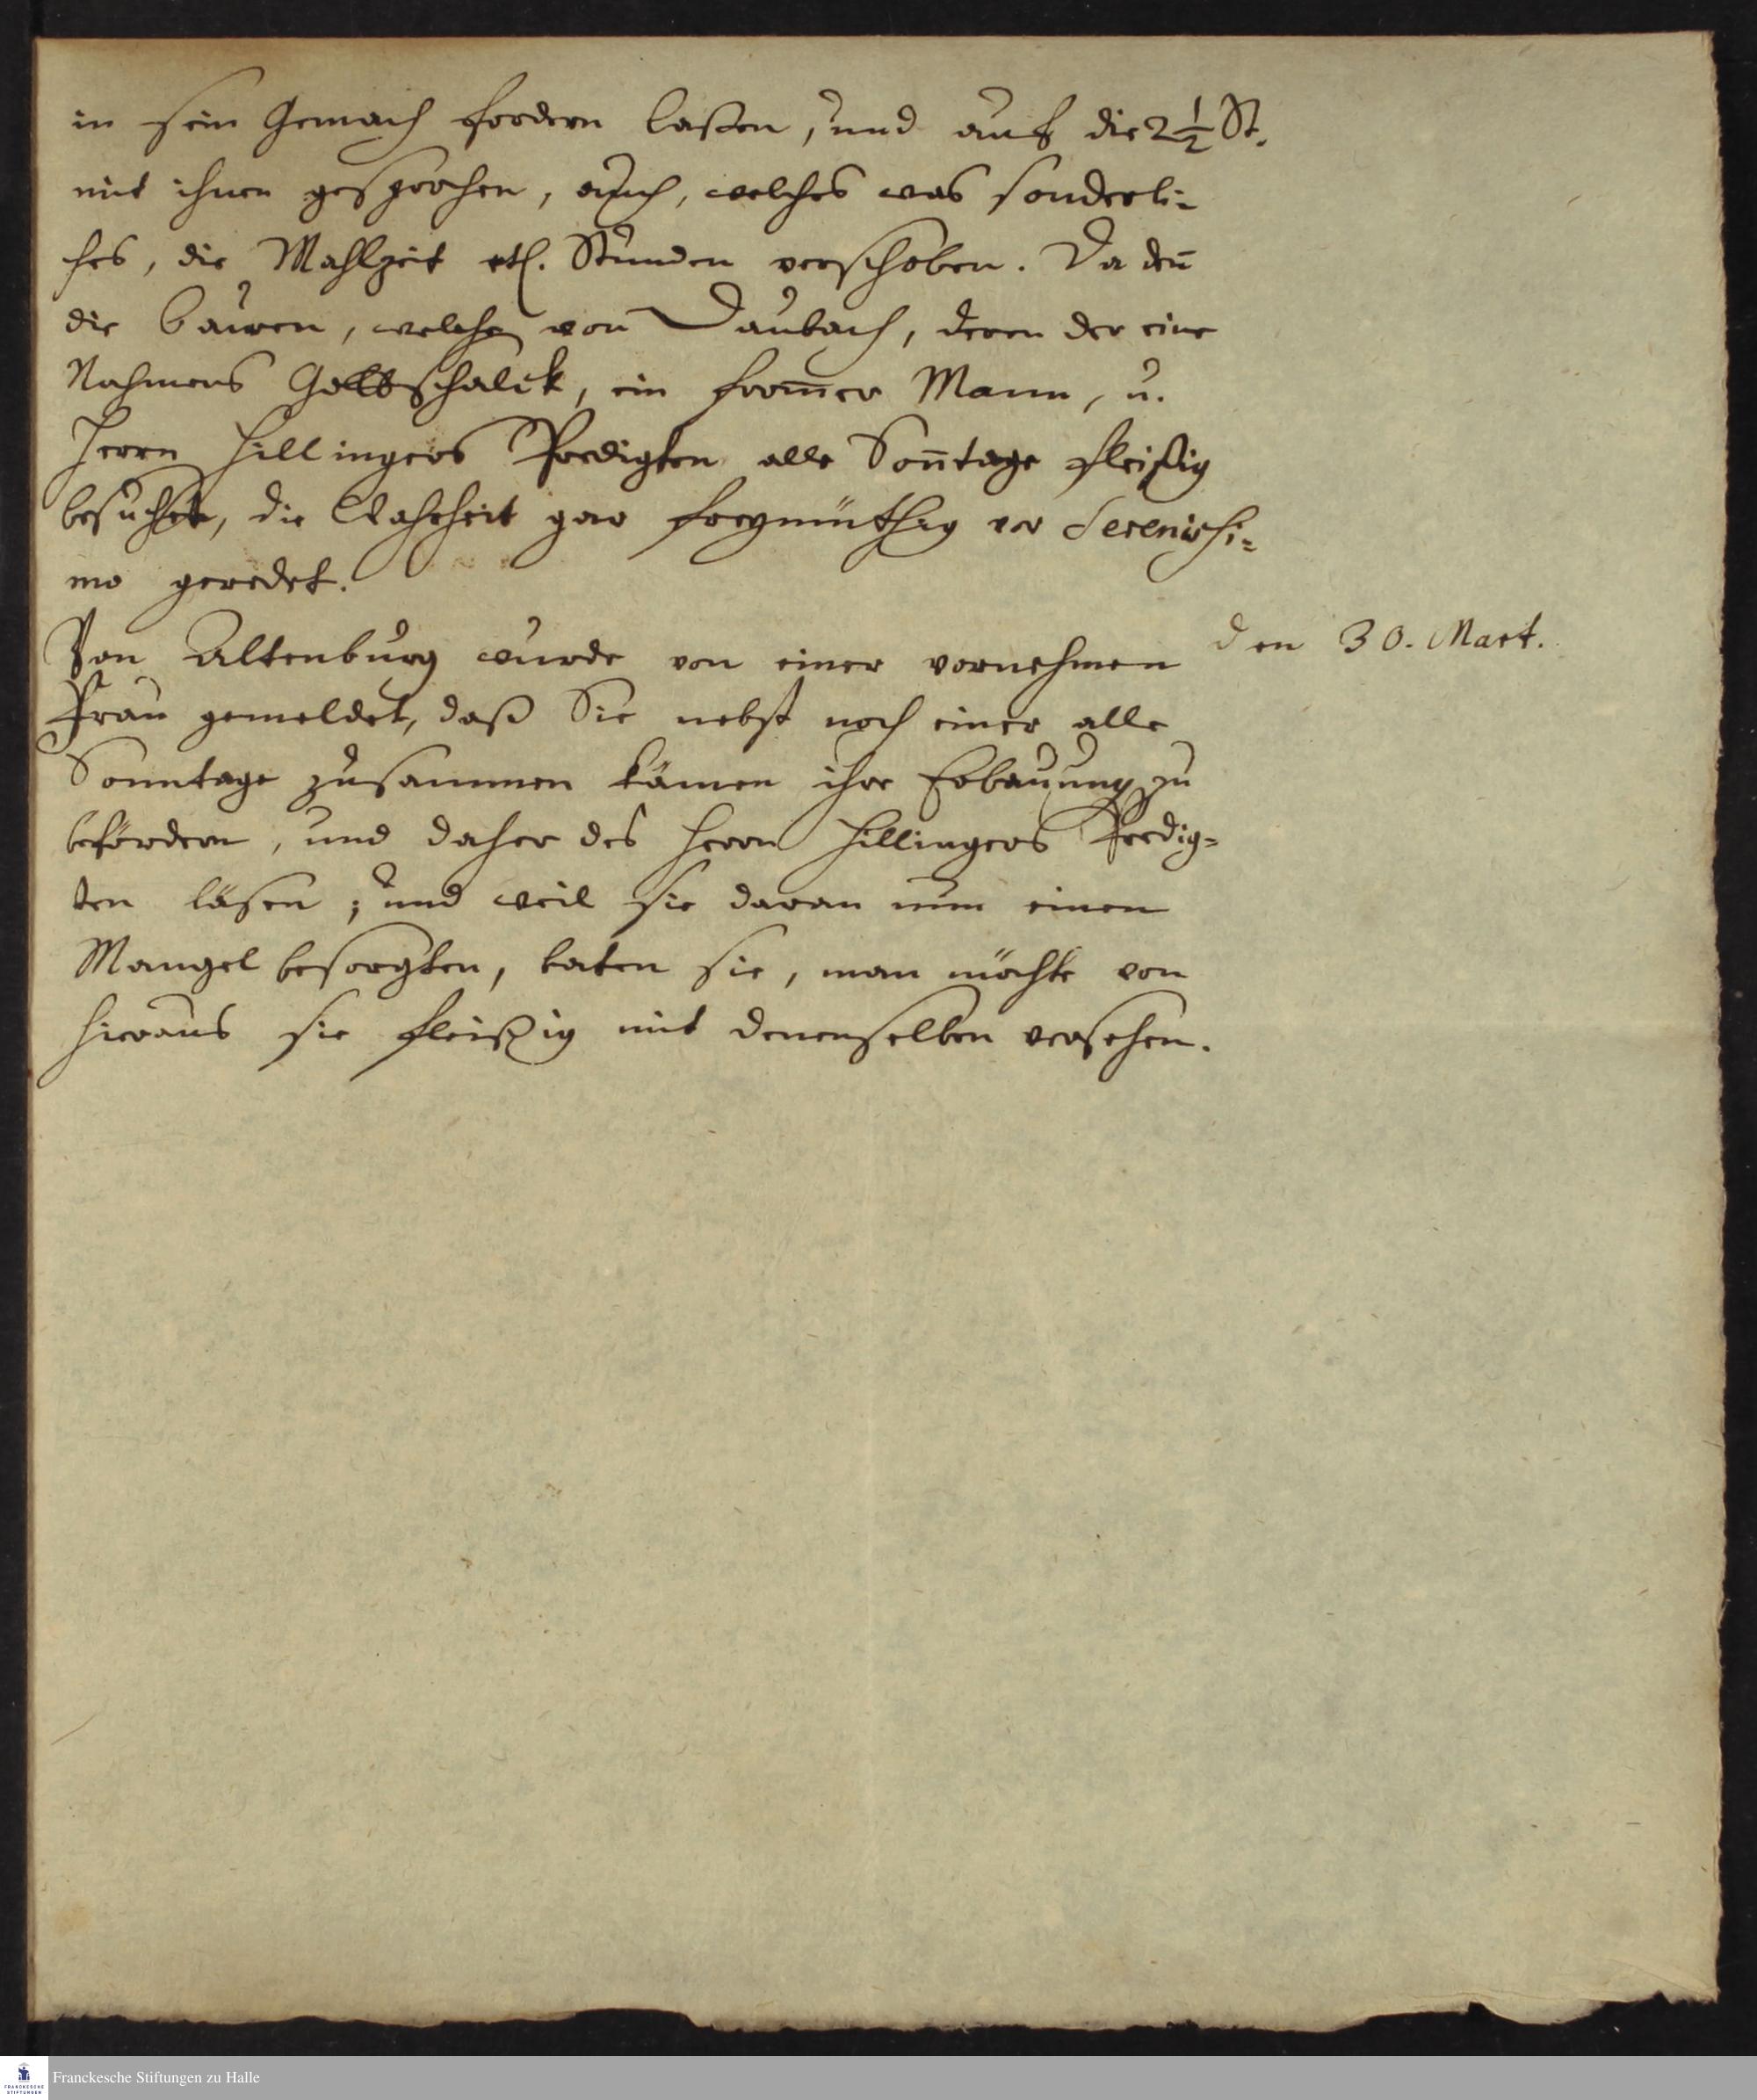 in sein Gemach fordern laßen, und auf die 2 1/2 St.
mit ihnen gesprochen, auch, welches was sonderli-
ches, die Mahlzeit etl. Stunden verschoben. Da deñ
die Bauren, welche von Daubach, deren der eine
Nahmens Gottschalck, ein from̃er Mann, u.
Herrn Hillingers Predigten alle Soñtage fleißig
besuchet, die Wahrheit gar freymüthig vor Serenissi-
mo geredet.
Von Altenburg wurde von einer vornehmen
den 30. Mart.
Frau gemeldet, daß Sie nebst noch einer alle
Sonntage zusammen kämen ihre Erbauung zu
befördern, und daher des Herrn Hillingers Predig-
ten läsen; und weil sie daran nun einen
Mangel besorgten, baten sie, man möchte von
hieraus sie fleißig mit denenselben versehen.
Franckesche Stiftungen zu Halle
FRANCKESCHE
STIFTUNGEN